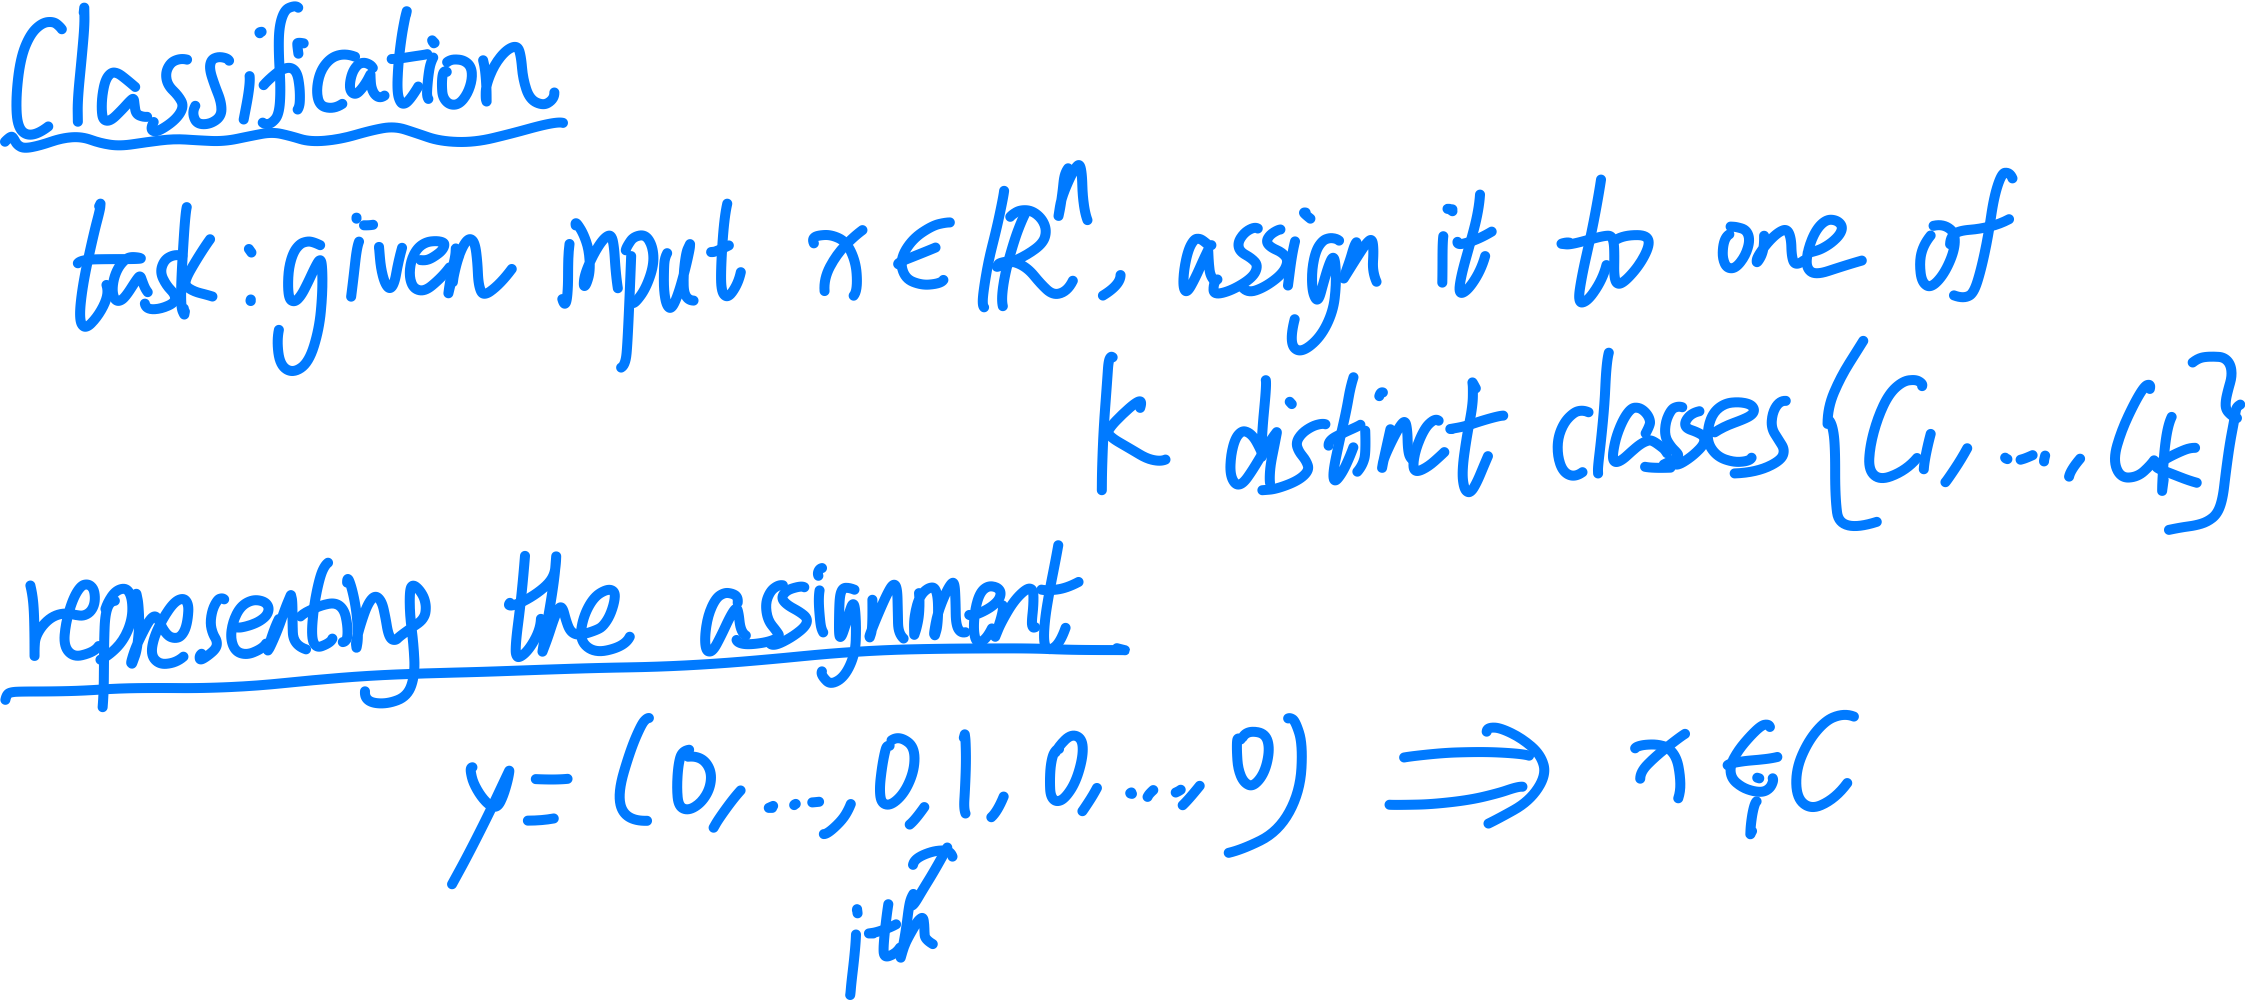 Classification
task: given input x ∈ ℝⁿ, assign it to one of
K distinct classes {C₁, ..., Cₖ}
representing the assignment
y = (0, ..., 0, 1, 0, ..., 0) ⟹ x ∈ C
jth